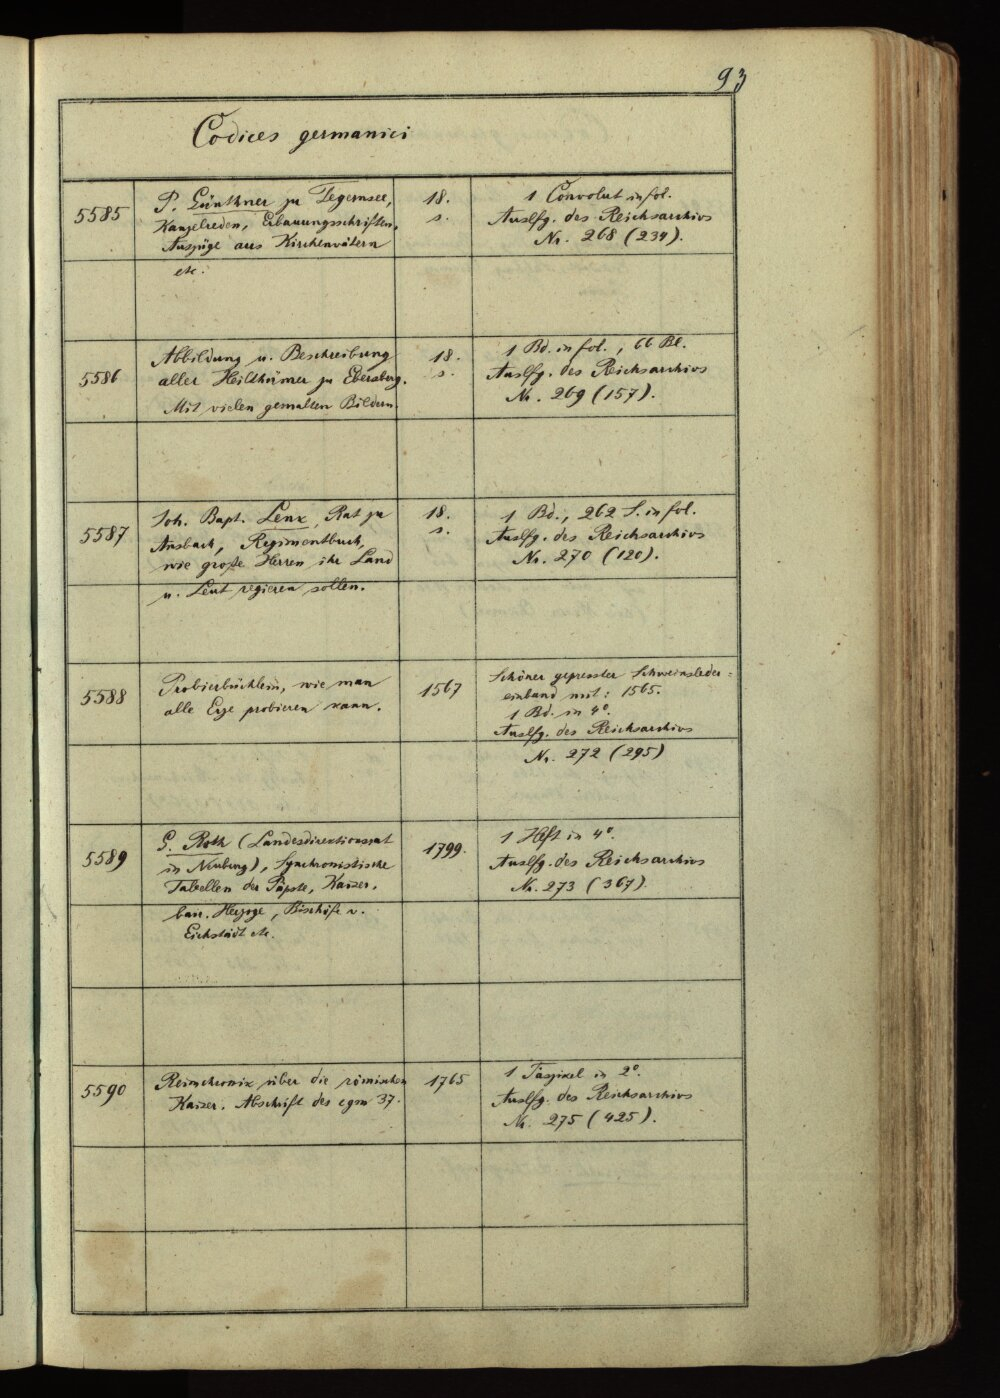 93
Codices germanici
5585
P. Günthner zu Tegernsee,
Kanzelreden, Erbauungsschriften,
Auszüge aus Kirchenvätern
etc.
18.
s.
1 Convolut in fol.
Auslfg. des Reichsarchivs
Nr. 268 (234).
5586
Abbildung u. Beschreibung
aller Heilthümer zu Ebersberg.
Mit vielen gemalten Bildern.
18.
s.
1 Bd. in fol., 66 Bl.
Auslfg. des Reichsarchivs
Nr. 269 (157).
5587
Joh. Bapt. Lenx, Rat zu
Ansbach, Regimentbuch,
wie große Herren ihr Land
u. Leut regieren sollen.
18.
s.
1 Bd., 262 S. in fol.
Auslfg. des Reichsarchivs
Nr. 270 (120).
5588
Probierbüchlein, wie man
alle Erze probieren kann.
1567
Schöner gepresster Schweinsleder-
einband mit: 1565.
1 Bd. in 4°.
Auslfg. des Reichsarchivs
Nr. 272 (295)
5589
G. Roth (Landesdirektionsrat
in Neuburg), Synchronistische
Tabellen der Päpste, Kaiser,
bair. Herzoge, Bischöfe v.
Eichstädt etc.
1799.
1 Heft in 4°.
Auslfg. des Reichsarchivs
Nr. 273 (367).
5590
Reimchronik über die römischen
Kaiser. Abschrift des cgm 37.
1765
1 Faszikel in 2°.
Auslfg. des Reichsarchivs
Nr. 275 (425).